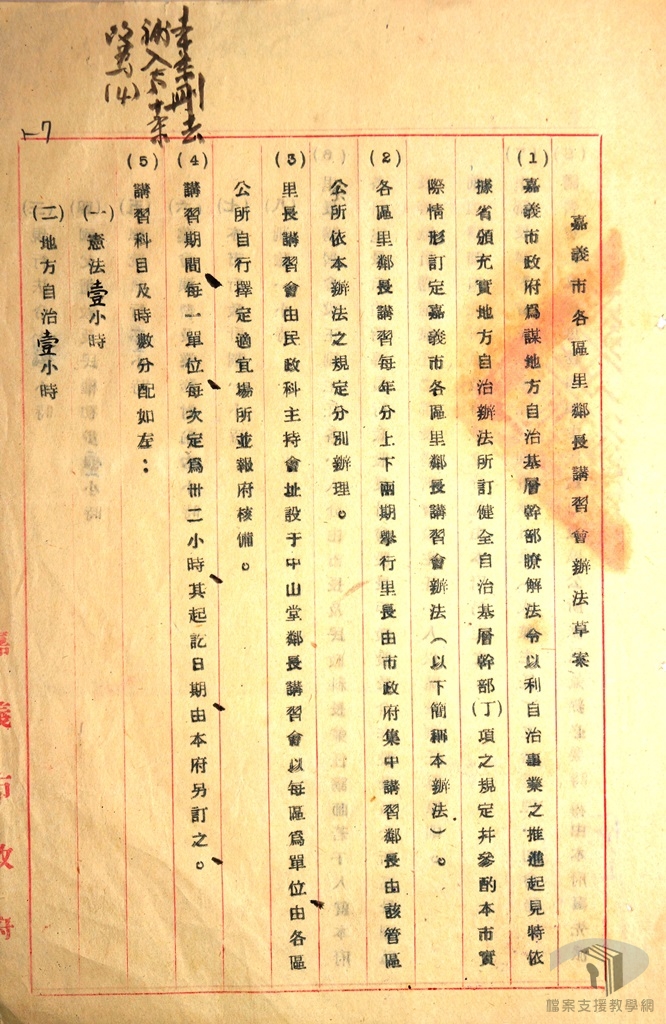 嘉義市各區里鄰長講習會辦法草案
(1)嘉義市政府爲謀地方自治基層幹部暸解法令以利自治事業之推進起見特依
據省頒充實地方自治辦法所訂健全自治基層幹部(丁)項之規定并參酌本市實
際情形訂定嘉義市各區里鄰長講習會辦法(以下簡稱本辦法)。
(2)各區里鄰長講習每年分上下兩期舉行里長由市政府集中講習鄰長由該管區
公所依本辦法之規定分別辦理。
(3)里長講習會由民政科主持會址設于中山堂鄰長講習會以每區爲單位由各區
公所自行擇定適宜場所並報府核備。
(4)講習期間每一單位每次定爲卅二小時其起訖日期由本府另訂之。
(5)講習科目及時數分配如左：
(一)憲法壹小時
(二)地方自治壹小時
刪去
改爲(4)
7
嘉義市政府
檔案支援教學網